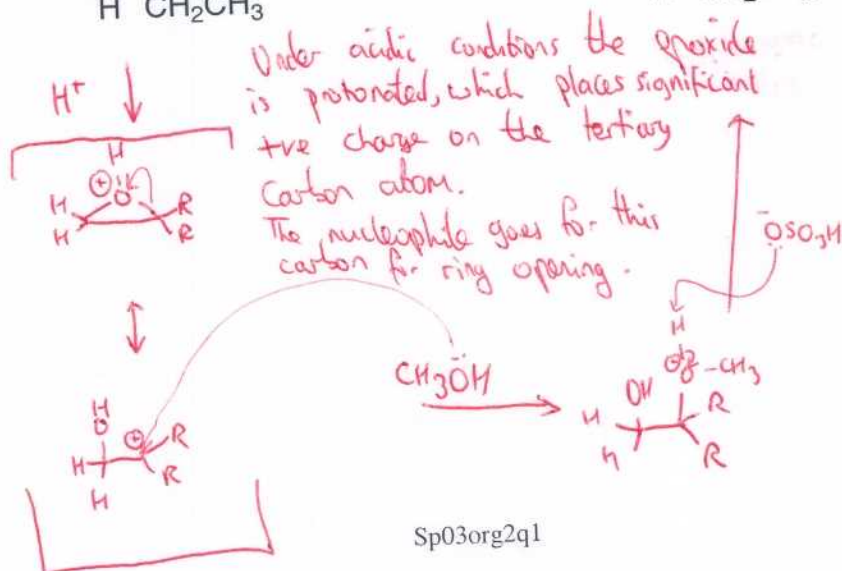 H CH₂CH₃
Under acidic conditions the epoxide
H⁺ is protonated, which places significant
+ve charge on the tertiary
carbon atom.
The nucleophile goes for this
carbon for ring opening.
H
⊕ O
H R
H R
⁻OSO₃H
H
CH₃ÖH
OH ⊕O-CH₃
H R
H R
H
O
⊕ R
H R
H
Sp03org2q1